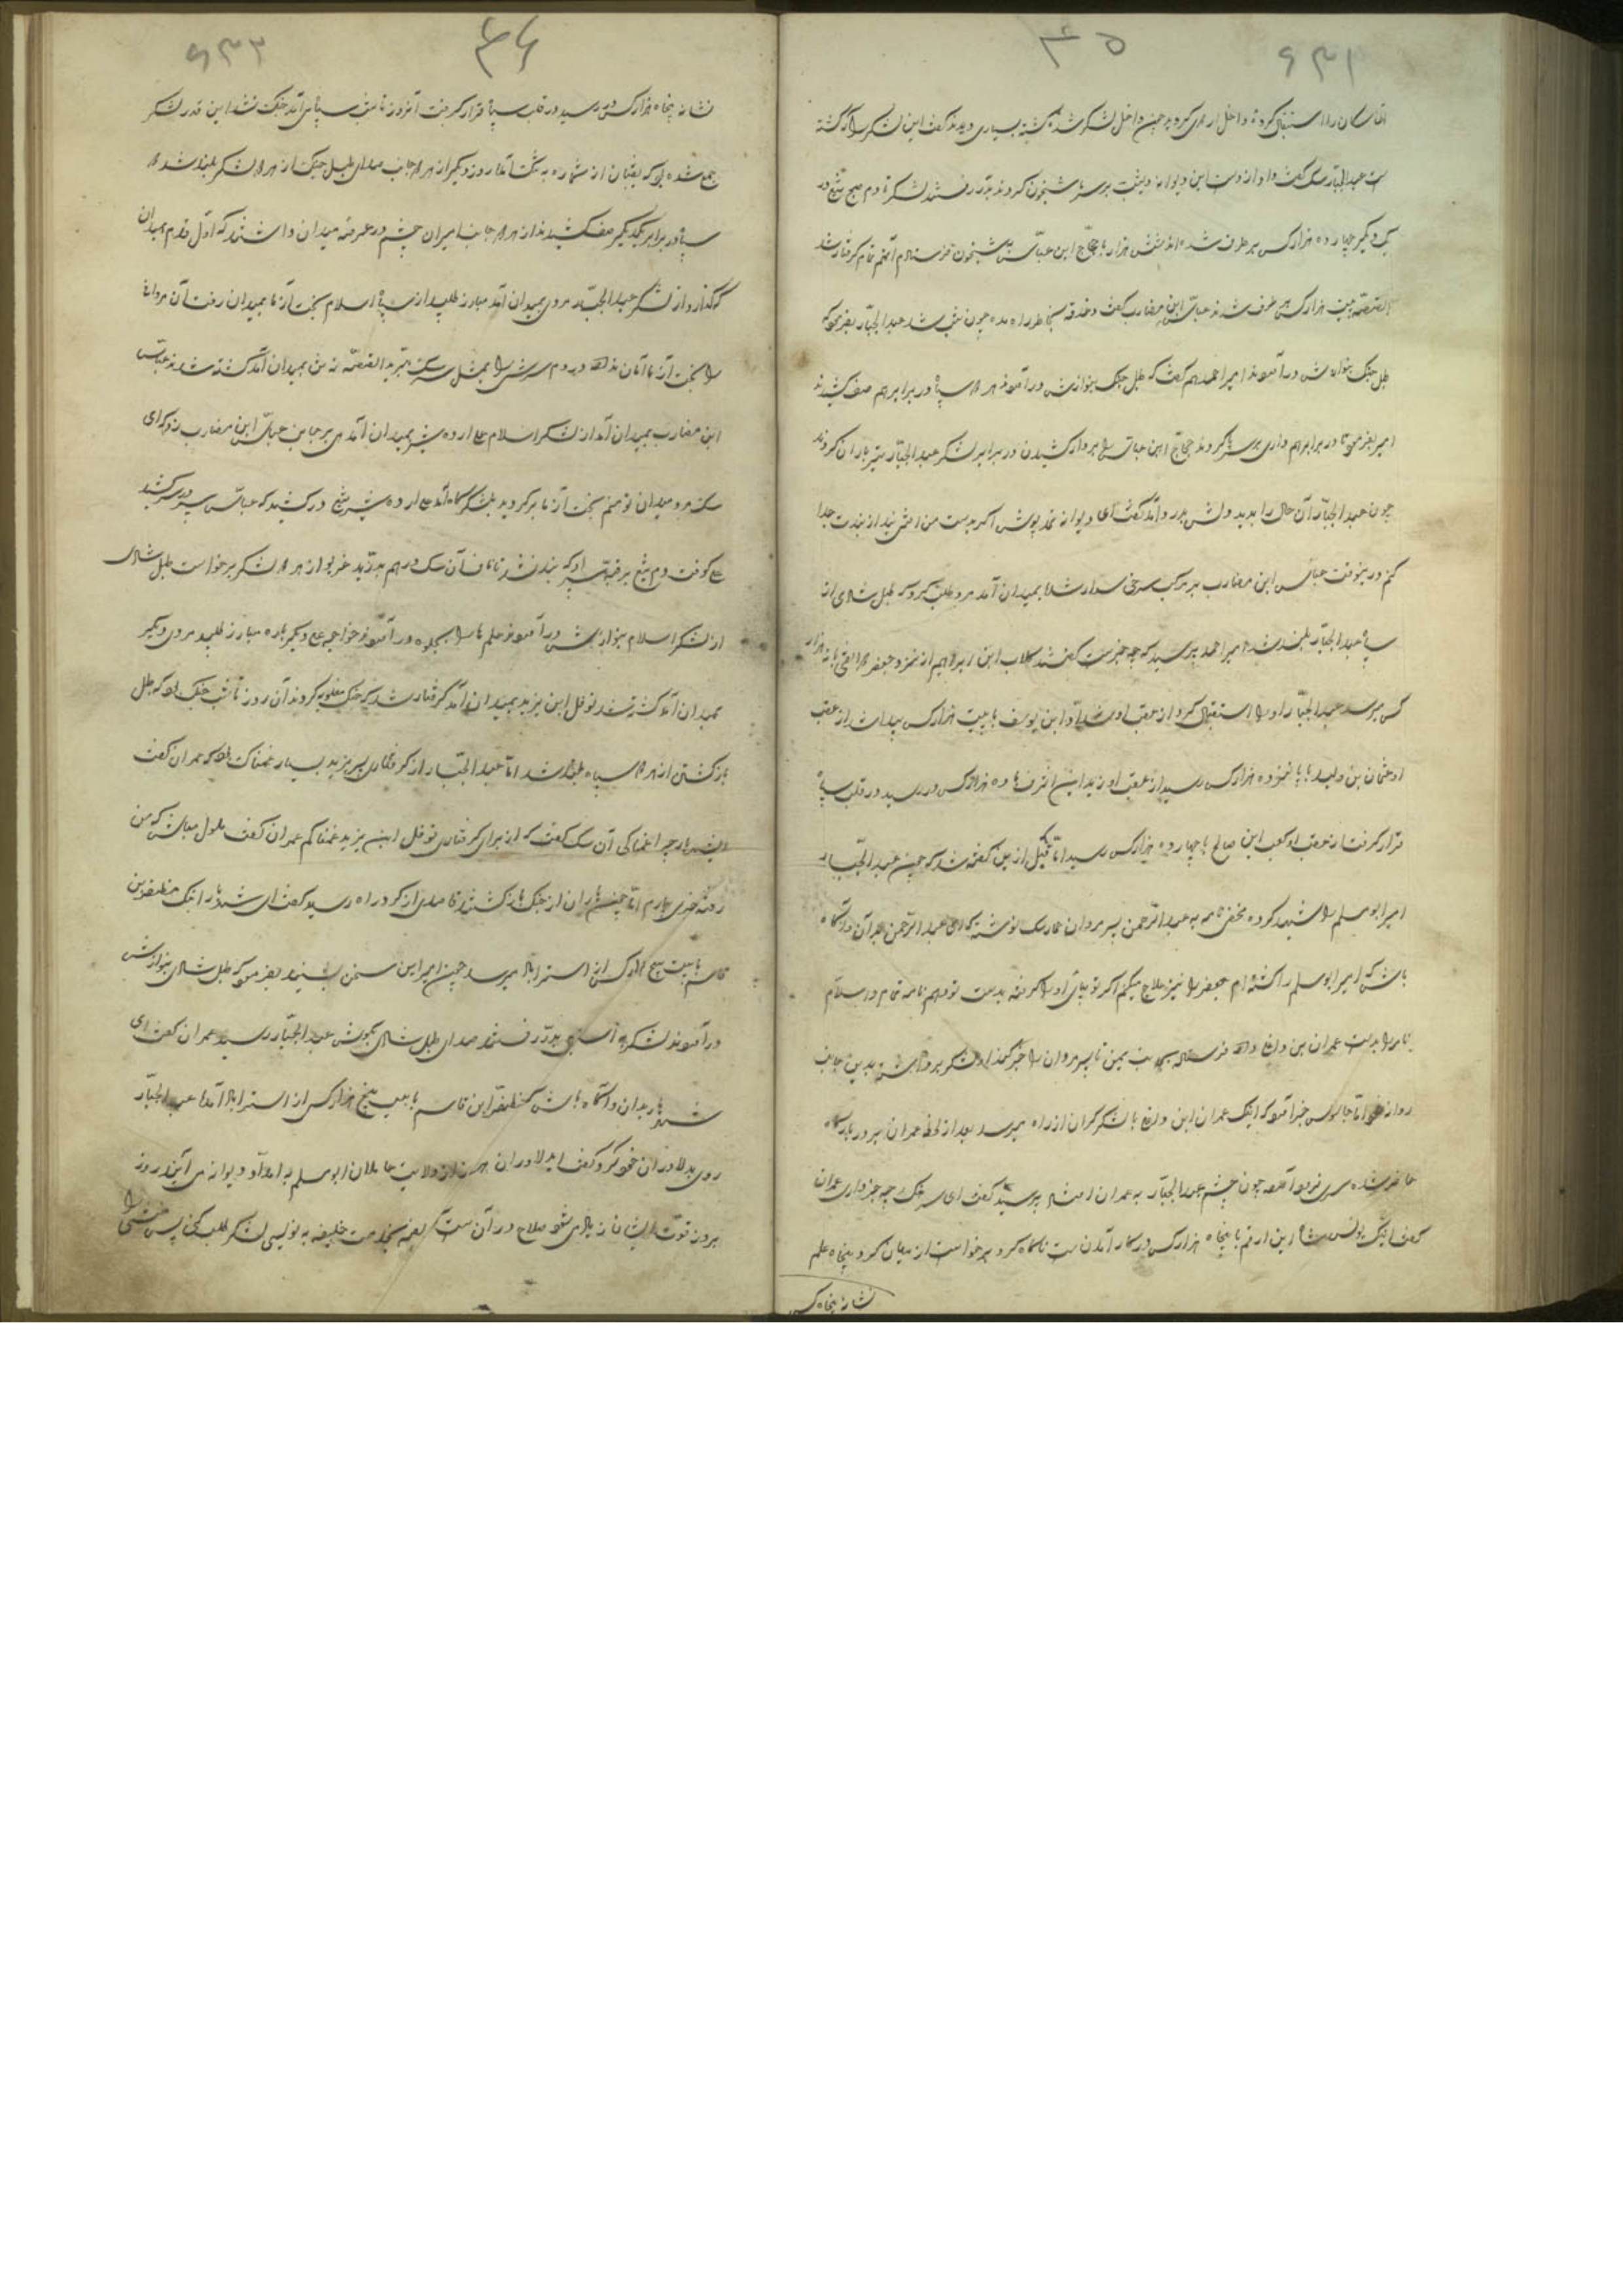 ۶۳۱
۴۵
داخل لشکر شد کشته بسیاری دیدند گفت این لشکر را که کشته
است عبدالجبار سک گفت داد از دست این دیوانه دیشب بر سر ما شبخون کردند بدر رفتند لشکر تا دم صبح تیغ در
یکدیگر چهارده هزار کس بر طرف شده اند شش هزار با حجاج ابن عباس به شبخون فرستادم آنهم تمام گرفتار شد
القصه بیست هزار کس بر طرف شدند عباس ابن مضارب گفت دغدغه بخاطر راه مده چون شب شد عبدالجبار بفرمود که
طبل جنگ بنوازش درآمدند امیر احمد هم گفت که طبل جنگ بنوازش درآمدند هر دو سپاه در برابر هم صف کشیدند
امیر بفرمود تا در برابر هم داری بر سر پا کردند حجاج ابن عباس را بر دار کشیدن در برابر لشکر عبدالجبار تیر باران کردند
چون عبدالجبار آن حال را بدید دلش بدرد آمد گفت ای دیوانه نمد پوش اگر بدست من افتی بند از بندت جدا
کنم درینوقت عباس ابن مضارب بر مرکب سرخی سوار شد بمیدان آمد مرد طلب کرد که طبل شادی از
سپاه عبدالجبار بلند شد امیر احمد پرسید که چه خبرست گفتند سلاب ابن ابراهیم از نزد جعفر دوانقی با ده هزار
کس میرسد عبدالجبار او را استقبال کرد از عقب او شداد ابن یوسف با بیست هزار کس پیدا شد از عقب
او عثمان بن ولید با پانزده هزار کس رسید از عقب او زید ابن اشرف با ده هزار کس در رسید در قلب سپاه
قرار گرفت از عقب او کعب ابن صالح با چهارده هزار کس رسید اما قبل ازین گفته شد که چون عبدالجبار
امیر ابومسلم را شهید کرده مخفی نامه به عبدالرحمن پسر مروان حمار سک نوشته که ای عبدالرحمن بدان و آگاه
باش که امیر ابومسلم را کشته ام جعفر را نیز علاج میکنم اگر تو بیائی او را گرفته بدست تو دهم نامه تمام والسلام
نامه را بدست عمران بن داده فرستاد بجانب یمن تا پسر مروان را خبر کند او لشکر برداشته بدین جانب
روانه شود اما جاسوس خبر آورد که اینک عمران ابن با لشکر گران از راه میرسد بعد از لحظه عمران سر در بارگاه
حاضر شده سری فرود آورد چون چشم عبدالجبار به عمران افتاد پرسید گفت ای سرهنگ چه خبر داری عمران
گفت اینک یونس شاه ابن ارقم با پنجاه هزار کس در کار آمدن است ناگاه گرد برخواست از میان گرد پنجاه علم
نشانه پنجاه کس
۶۳۲
۴۶
نشانه پنجاه هزار کس در رسید در قلب سپاه قرار گرفت آنروز تا شب سپاه می آمد جنگ نشد این قدر لشکر
جمع شده بود که بقیان از شماره به تنگ آمد روز دیگر از هر دو جانب صدای طبل جنگ از هر دو لشکر بلند شد دو
سپاه در برابر یکدیگر صف کشیدند از هر دو جانب امیران چشم در عرصه میدان داشتند که اول قدم بمیدان
که گذارد از لشکر عبدالجبار مردی بمیدان آمد مبارز طلبید از سپاه اسلام بخت آزما بمیدان رفت آن مردانه
را بخت آزما امان نداد در دم سرش را بمثل سر سک ببرید القصه نه تن بمیدان آمد کشته شدند عباس
ابن مضارب بمیدان آمد از لشکر اسلام علی اردشیر بمیدان آمد عباس ابن مضارب زد که ای
سک مرد میدان تو منم بخت آزما برگردید بلشکرگاه آمد علی اردشیر تیغ در کشید که عباس سپر در سر کشید
علی کوفت دم تیغ بر قبه سپر او که بند نشد تا ناف آن سک در هم بدرید غریو از هر دو لشکر برخواست طبل شادی
از لشکر اسلام بنوازش درآمدند علم ها را بجلوه درآمدند خواجه علی دیگر باره مبارز طلبید مردی دیگر
بمیدان آمد کشته شد نوفل ابن یزید بمیدان آمد گرفتار شد که جنگ مغلوبه کردند آن روز تا شب جنگ بود که طبل
بازگشتن از هر دو سپاه بلند شد اما عبدالجبار از گرفتاری پسر یزید بسیار غمناک بود که عمران گفت
چرا غمناکی آن سک گفت که از برای گرفتاری نوفل ابن یزید غمناکم عمران گفت ملول مباش که من
رفته خبری بیارم اما چون یاران از جنگ بازگشتند قاصدی از گرد راه رسید گفت ای شهریار اینک مظفر بن
قاسم با بیست پنج هزار کس از استرآباد میرسد چون امیر این سخن بشنید بفرمود که طبل شادی بنوازش
درآمدند لشکر به آسایش بدر رفتند صدای طبل شادی بگوش عبدالجبار رسید عمران گفت ای
شهریار بدان و آگاه باش که مظفر ابن قاسم با بیست پنج هزار کس از استرآباد آمد عبدالجبار
روی بدلاوران خود کرد گفت ای دلاوران هر روز از ولایت عاملان ابومسلم به امداد دیوانه می آیند روز
بروز قوت ایشان زیاده می شود صلاح در آن ست که نامه بخدمت خلیفه به نویسی لشکر طلب کنی پس منشی را